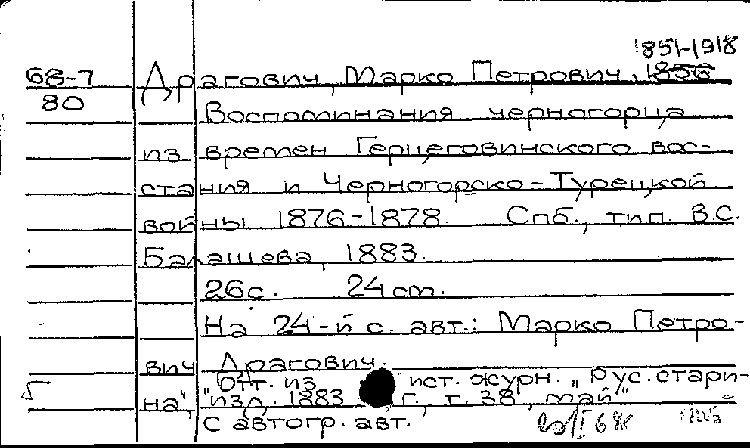 1851-1918
68-7 Драгович, Марко Петрович, 1856
80
Воспоминания черногорца
из времен Герцеговинского вос-
стания и Черногорско-Турецкой
войны 1876-1878. Спб., тип. В.С.
Балашева, 1883.
26с. 24cm.
На 24-й с. авт.: Марко Петро-
вич Драгович.
Отт. из ист. журн. „Рус. стари-
на", "изд. 1883 г., т. 38, май"
с автогр. авт.